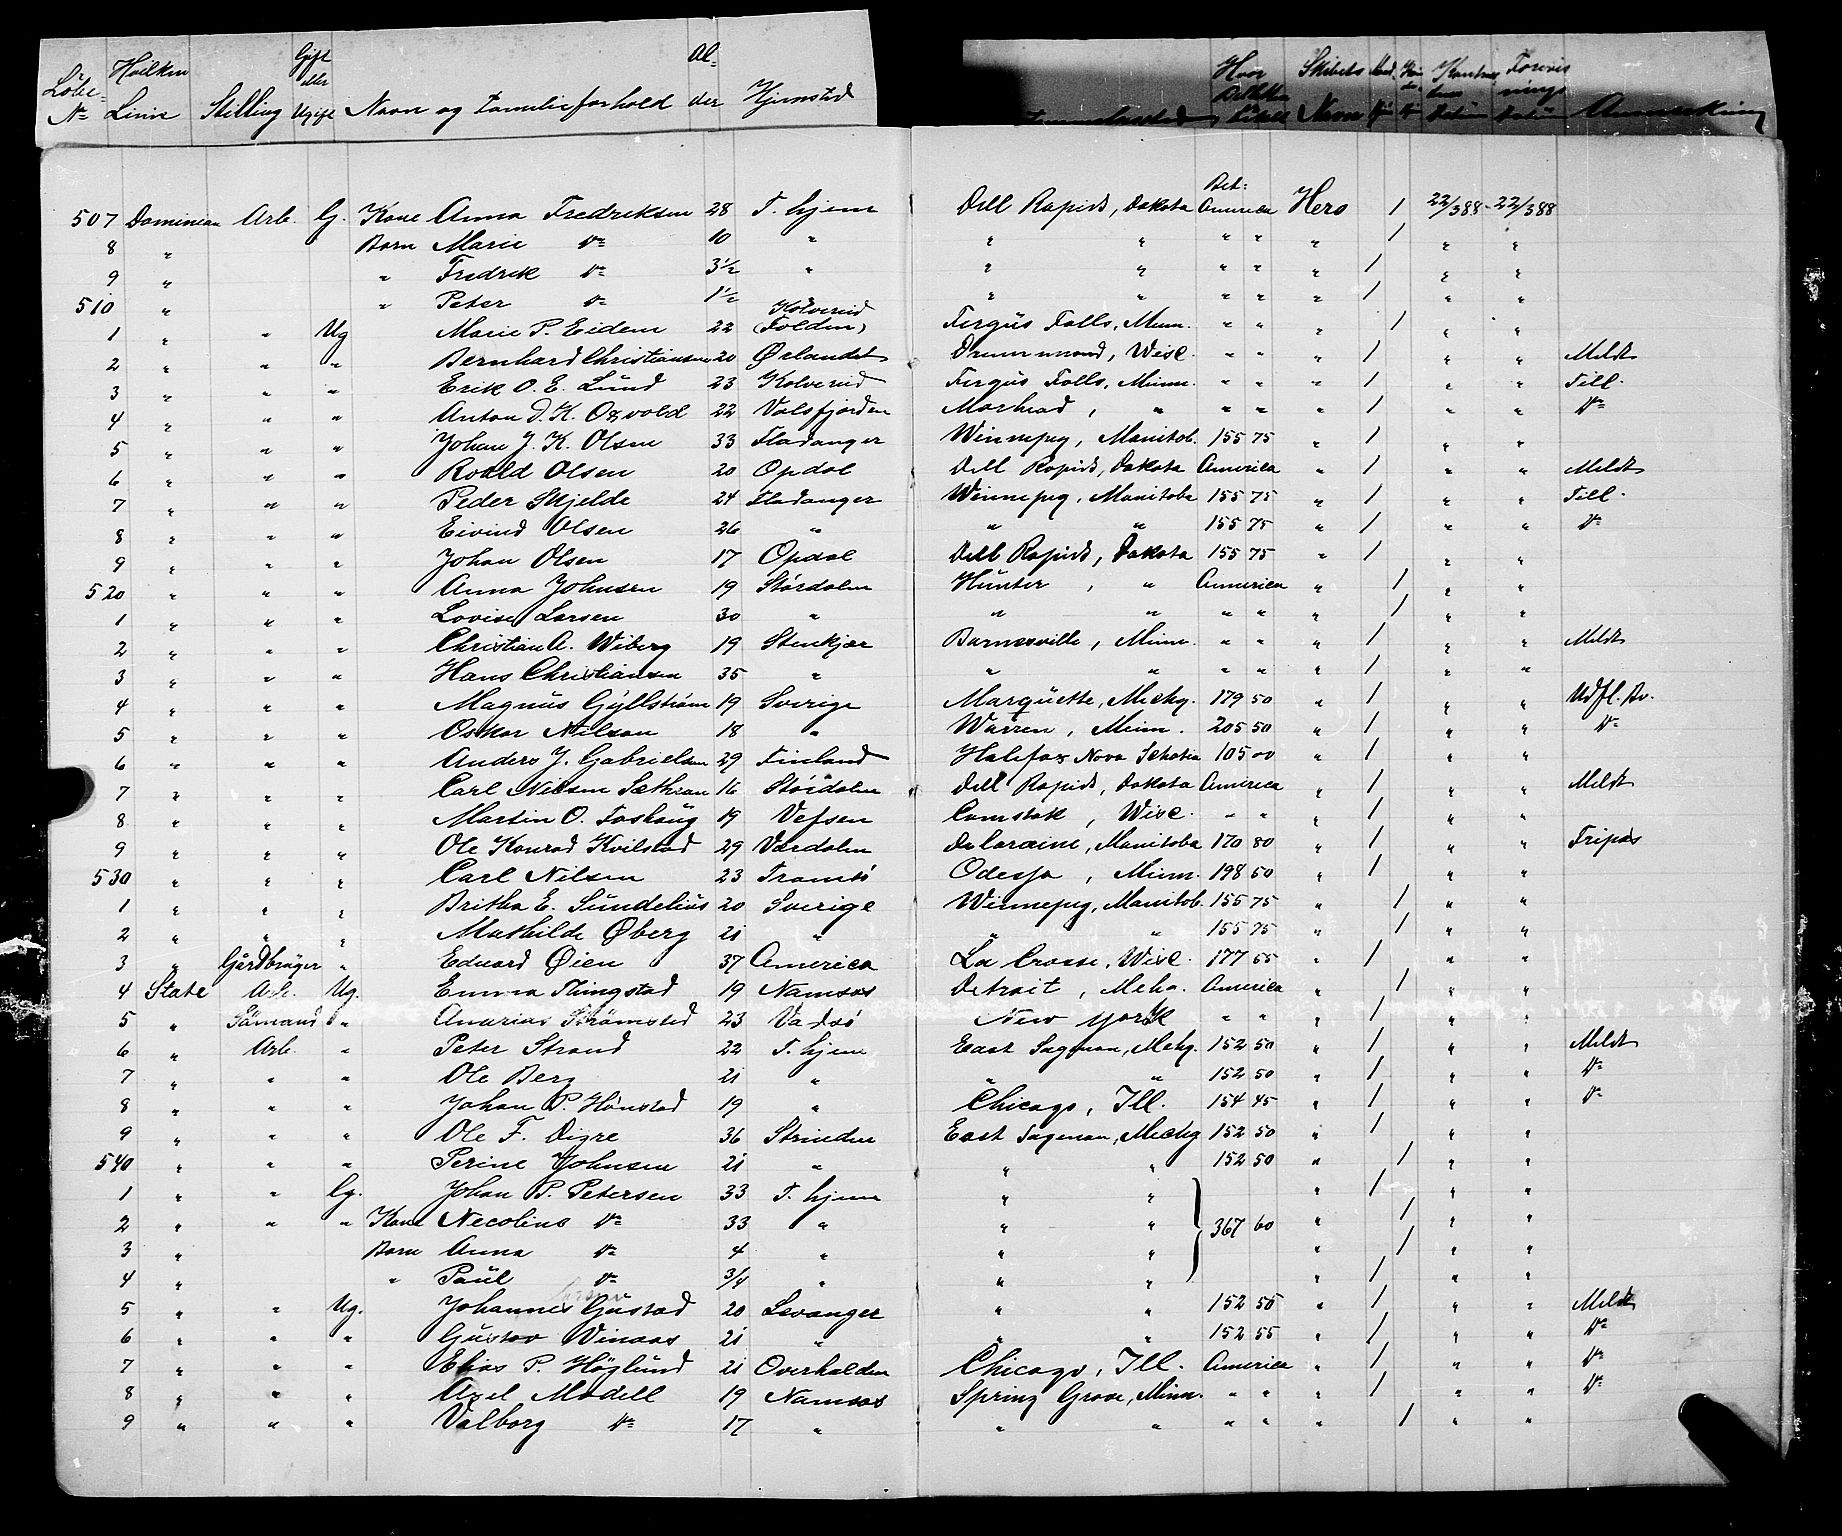 Löbe- No Hvilken Linie Stilling Gift eller Ugift Navn og Familieforhold Al- der Hjemsted Hvor Skibets Navn Anmærkning
507 Dominion Arb. G. Kone Anna Fredriksen 28 T. hjem Dell Rapids, Dakota Bet: America Hero 1 22/3 88 - 22/3 88
8 " Børn Marie Do 10 " " " " " " 1 " "
9 " " Fredrik Do 3 1/2 " " " " " " 1 " "
510 " " Peter Do 1 1/2 " " " " " 1 " "
1 " " Ug Marie P. Eidem 22 Kolvereid (Folden) Fergüs Falls, Minn. " " " 1 " "
2 " " " Bernhard Christiansen 20 Ørlandet Drummond, Wisc. " " " 1 " " Meldt
3 " " " Erik O. E. Lünd 23 Kolvereid Fergüs Falls, Minn. " " " 1 " " Till.
4 " " " Anton D. K. Oxvold 22 Valsfjorden Morhead, " " " " 1 " " Do
5 " " " Johan J. K. Olsen 33 Fladanger Winnepeg, Manitob. 155 75 " 1 " "
6 " " " Roald Olsen 20 Opdal Dell Rapids, Dakota America " 1 " " Meldt
7 " " " Peder Skjelde 24 Fladanger Winnepeg, Manitoba 155 75 " 1 " " Till.
8 " " " Eivind Olsen 26 " " " 155 75 " 1 " " Do
9 " " " Johan Olsen 17 Opdal Dell Rapids, Dakota 155 75 " 1 " "
520 " " " Anna Johnsen 19 Stördalen Hünter, " America " 1 " "
1 " " " Lovise Larsen 30 " " " " " " 1 " "
2 " " " Christian A. Wiberg 19 Stenkjær Barnesville, Minn. " " " 1 " " Meldt
3 " " " Hans Christiansen 35 " " " " " " 1 " "
4 " " " Magnüs Gyllström 19 Sverige Marqüette, Michg. 179 50 " 1 " " Udfl. Bv.
5 " " " Oskar Nilson 18 " Warren, Minn. 205 50 " 1 " " Do
6 " " " Anders J. Gabrielsen 29 Finland Halifax Nova Schotia 105 00 " 1 " "
7 " " " Carl Nilsen Sæthran 16 Stördalen Dell Rapids, Dakota America " 1 " " Meldt
8 " " " Martin O. Foshaüg 19 Vefsen Comstok, Wisc. " " " 1 " "
9 " " " Ole Konrad Kvilstad 29 Værdalen Deloraine, Manitoba 170 80 " 1 " " Tripas
530 " " " Carl Nilsen 23 Tromsö Odessa, Minn. 198 50 " 1 " "
1 " " " Britha E. Sündeliüs 20 Sverige Winnepeg, Manitob. 155 75 " 1 " "
2 " " " Mathilde Øberg 21 " " " 155 75 " 1 " "
3 " Gårdbrüger " Edvard Øien 37 America La Crosse, Wisc. 177 55 " 1 " "
4 State Arb. Ug. Emma Flingstad 19 Namsos Detroit, Mcha. America " 1 " "
5 " Sömand " Anarias Strömsted 23 Vadsö New York " " " 1 " "
6 " Arb. " Peter Strand 22 T. hjem East Sagenan, Mchg. 152 50 " 1 " " Meldt
7 " " " Ole Berg 21 " " " 152 50 " 1 " " Do
8 " " " Johan P. Hönstad 19 " Chicago, Ill. 154 45 " 1 " " Do
9 " " " Ole F. Digre 36 Strinden East Sagenan, Michg 152 50 " 1 " "
540 " " " Perine Johnsen 21 " " " 152 50 " 1 " "
1 " " Gg. Johan P. Petersen 33 T. hjem " " " 1 " "
2 " " " Kone Necoline Do 33 " " " 367 60 " 1 " "
3 " Børn Anna Do 4 " " " " 1 " "
4 " " Paül Do 3/4 " " " " 1 " "
5 " " Ug. Johannes Güstad 20 Levanger " " 152 55 " 1 " " Meldt
6 " " " Güstav Vinaas 21 " " " 152 55 " 1 " " Do
7 " " " Elias P. Höglünd 21 Overhalden Chicago, Ill. America " 1 " " Do
8 " " " Axel Modell 19 Namsos Spring Grove, Minn. " " " 1 " " Do
9 " " " Valborg Do 17 " " " " " " 1 " "